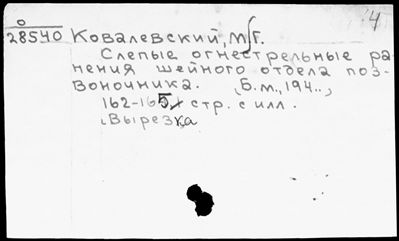 О
28540 Ковалевский, М.Г.
Слепые огнестрельные ра-
нения шейного отдела поз-
воночника. (Б.м., 194..)
162-165 стр. с илл.
(Вырезка